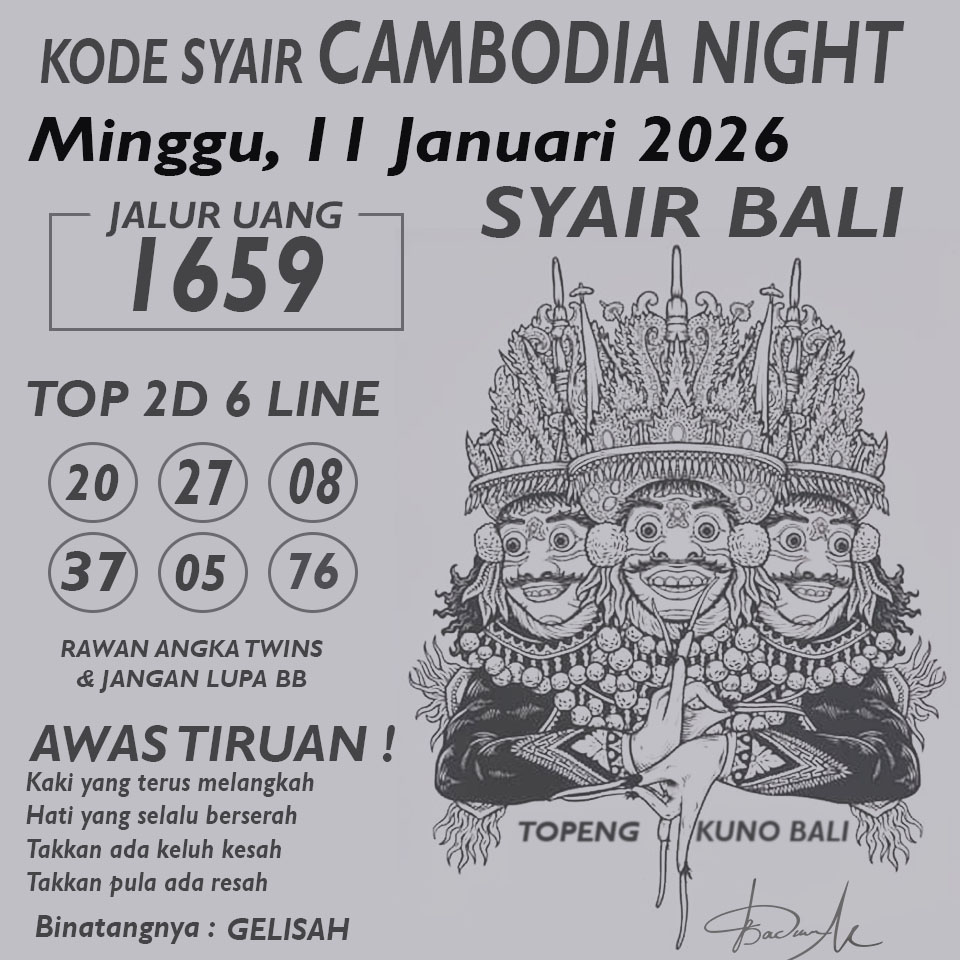 KODE SYAIR CAMBODIA NIGHT
Minggu, 11 Januari 2026
SYAIR BALI
JALUR UANG
1659
TOP 2D 6 LINE
20 27 08
37 05 76
RAWAN ANGKA TWINS
& JANGAN LUPA BB
AWAS TIRUAN !
Kaki yang terus melangkah
Hati yang selalu berserah
Takkan ada keluh kesah
Takkan pula ada resah
Binatangnya : GELISAH
TOPENG KUNO BALI